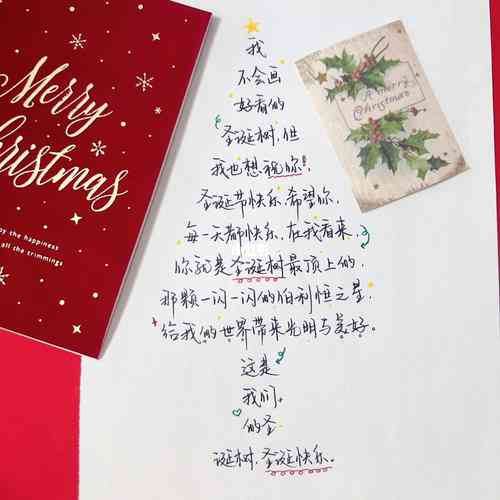 Merry
Christmas
by the happiness
all the trimmings
我
不会画
好看的
圣诞树,但
我也想祝你!
圣诞节快乐,希望你,
每一天都快乐,在我看来,
你就是圣诞树最顶上的,
那颗一闪一闪的伯利恒之星,
给我的世界带来光明与美好。
这是
我们,
的圣
诞树,圣诞快乐。
A merry
Christmas